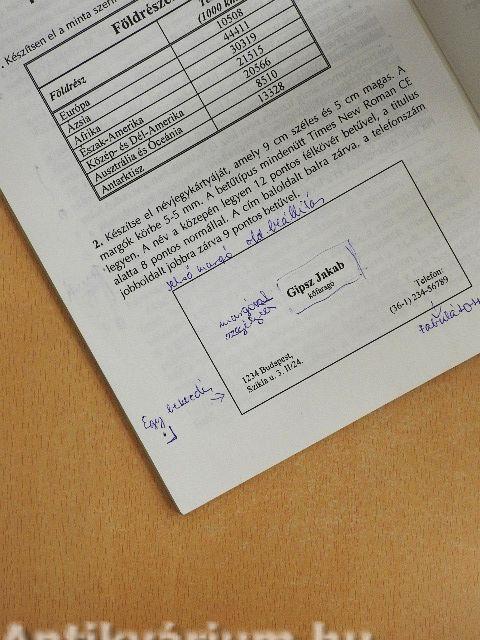 . Készítsen el a minta szerin
Földrészek
(1000 km
Földrész
Európa 10508
Ázsia 44411
Afrika 30319
Észak-Amerika 21515
Közép- és Dél-Amerika 20566
Ausztrália és Óceánia 8510
Antarktisz 13328
2. Készítse el névjegykártyáját, amely 9 cm széles és 5 cm magas. A
margók körbe 5-5 mm. A betűtípus mindenütt Times New Roman CE
legyen. A név a középen legyen 12 pontos félkövér betűvel, a titulus
alatta 8 pontos normállal. A cím baloldalt balra zárva, a telefonszám
jobboldalt jobbra zárva 9 pontos betűvel.
felső margó old beállítás
margóval
Gipsz Jakab
kőfaragó
Telefon:
(36-1) 234-56789
1234 Budapest,
Szikla u. 3. II/24.
Egy bekezdés
Antikvárium.hu